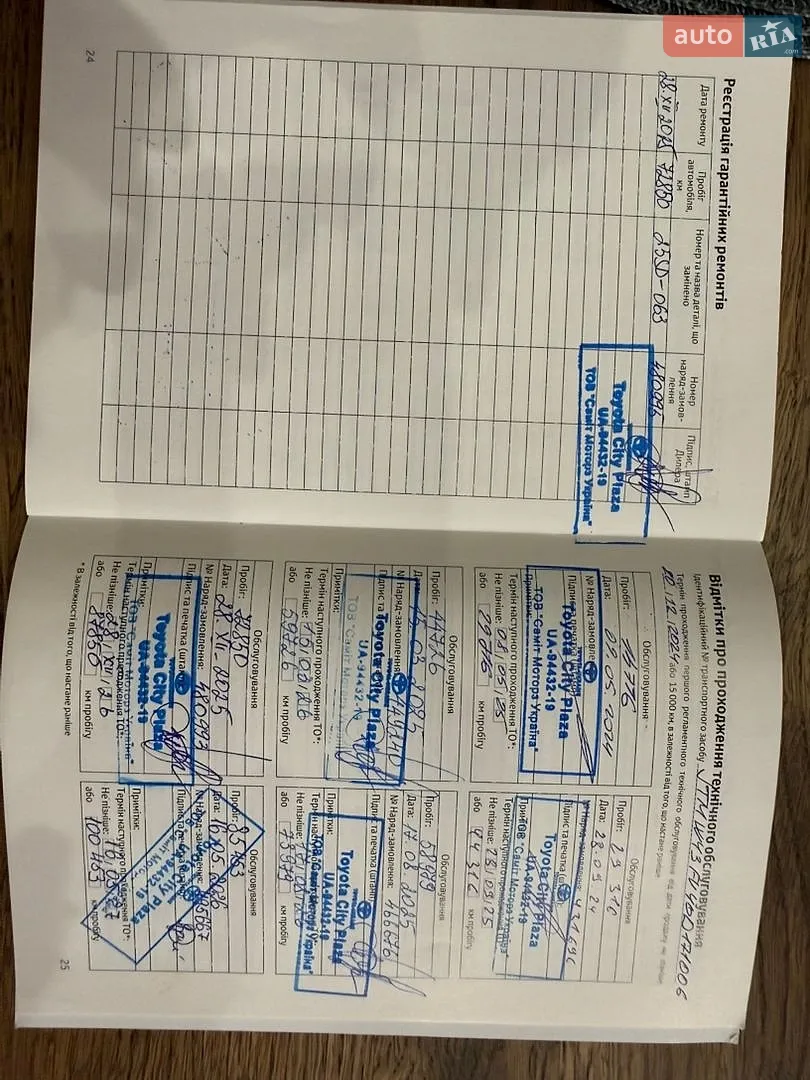 auto RIA .com
Реєстрація гарантійних ремонтів
Дата ремонту
Пробіг автомобіля, км
Номер та назва деталі, що замінено
Номер наряд-замовлення
Підпис, штамп Дилера
28.XII 2025 72850 25SD-063 480096
Toyota City Plaza
UA-94432-19
ТОВ "Саміт Моторз Україна"
24
Відмітки про проходження технічного обслуговування
Ідентифікаційний № транспортного засобу
Термін проходження першого регламентного технічного обслуговування від дати продажу не пізніше
або 15 000 км, в залежності від того, що настане раніше
Обслуговування
Пробіг: 14776
Дата: 09.05.2024
№ Наряд-замовлення
Підпис та печатка
Toyota City Plaza
UA-94432-19
ТОВ "Саміт Моторз Україна"
Примітки:
Термін наступного проходження ТО*:
Не пізніше: 09/05/25
або 29776 км пробігу
Обслуговування
Пробіг: 29310
Дата: 28.09.24
№ Наряд-замовлення: 431696
Підпис та печатка
Toyota City Plaza
UA-94432-19
ТОВ "Саміт Моторз Україна"
Примітки:
Термін наступного проходження ТО*:
Не пізніше: 28/09/25
або 44312 км пробігу
Обслуговування
Пробіг: 44726
Дата: 15.03.2025
№ Наряд-замовлення
Підпис та
Toyota City Plaza
UA-94432-19
ТОВ "Саміт Моторз Україна"
Примітки:
Термін наступного проходження ТО*:
Не пізніше:
або 59726 км пробігу
Обслуговування
Пробіг: 58889
Дата: 17.08.2025
№ Наряд-замовлення: 466676
Підпис та печатка (штамп)
Toyota City Plaza
UA-94432-19
ТОВ "Саміт Моторз Україна"
Примітки:
Термін наступного проходження ТО*:
Не пізніше:
або км пробігу
Обслуговування
Пробіг: 72850
Дата: 28.XII.2025
№ Наряд-замовлення:
Підпис та печатка (штамп)
Toyota City Plaza
UA-94432-19
ТОВ "Саміт Моторз Україна"
Примітки:
Термін наступного проходження ТО*:
Не пізніше: 28/XII/26
або 87850 км пробігу
Обслуговування
Пробіг: 85453
Дата: 16.05.2026
№ Наряд-замовлення:
Примітки:
Термін наступного проходження ТО*:
Не пізніше: 16/05/27
або 100453 км пробігу
* В залежності від того, що настане раніше
25